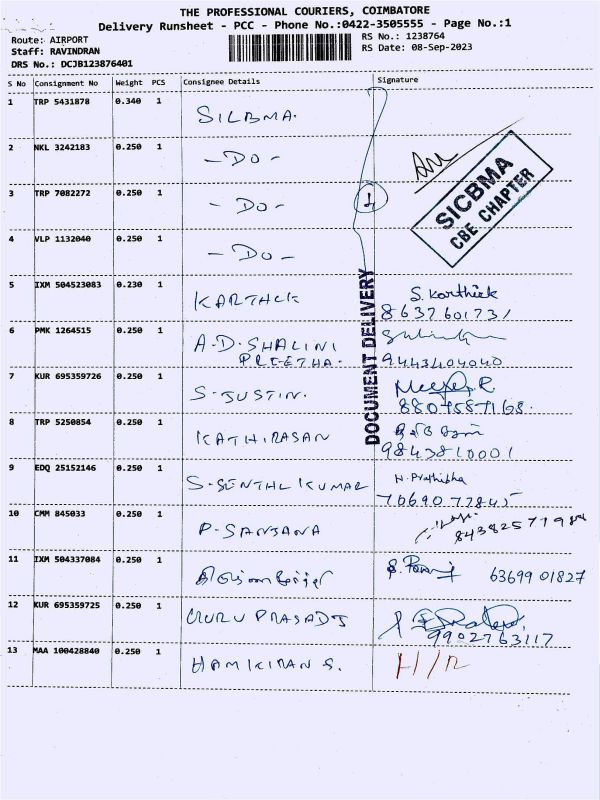 THE PROFESSIONAL COURIERS, COIMBATORE
Delivery Runsheet - PCC - Phone No.:0422-3505555 - Page No.:1
Route: AIRPORT
Staff: RAVINDRAN
DRS No.: DCJB123876401
RS No.: 1238764
RS Date: 08-Sep-2023
S No Consignment No Weight PCS Consignee Details Signature
1 TRP 5431878 0.340 1 SICBMA.
2 NKL 3242183 0.250 1 - DO -
3 TRP 7082272 0.250 1 - DO -
4 VLP 1132040 0.250 1 - DO -
SICBMA
CBE CHAPTER
DOCUMENT DELIVERY
5 IXM 504523083 0.230 1 KARTHCK S. Karthick
8637601731
6 PMK 1264515 0.250 1 A.D.SHALINI
PREETHA. 9443404040
7 KUR 695359726 0.250 1 S.JUSTIN. R
8807587168.
8 TRP 5250854 0.250 1 KATHIRASAN
9843810001
9 EDQ 25152146 0.250 1 S.SENTHL KUMAR N. Prathibha
7069077845
10 CMM 845033 0.250 1 P.SANJANA
8438257198
11 IXM 504337084 0.250 1 63699 01827
12 KUR 695359725 0.250 1 GURU PRASADJ
9902763117
13 MAA 100428840 0.250 1 HAMKIRAN S. H/R